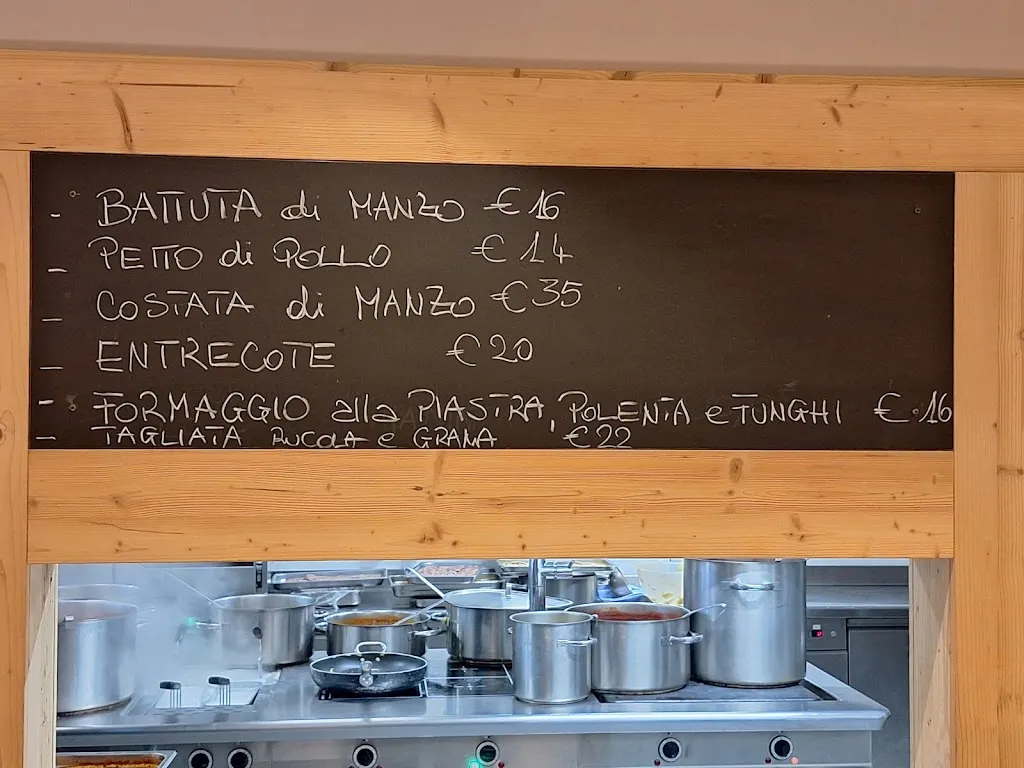 - BATTUTA di MANZO €16
- PETTO di POLLO €14
- COSTATA di MANZO €35
- ENTRECOTE €20
- FORMAGGIO alla PIASTRA, POLENTA e FUNGHI €16
- TAGLIATA RUCOLA e GRANA €22